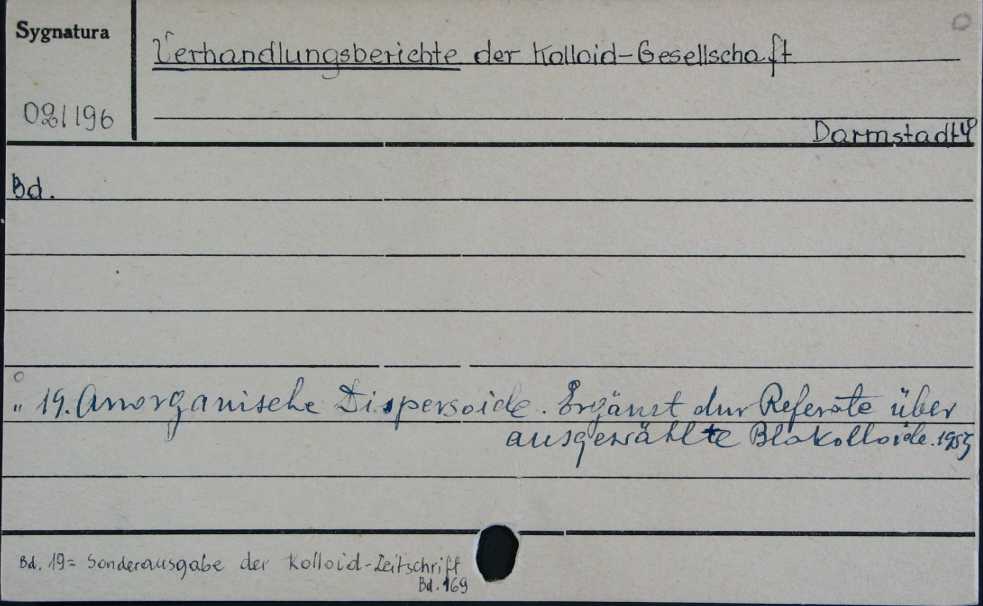 Sygnatura
Verhandlungsberichte der Kolloid-Gesellschaft
021196
Darmstadt 4°
Bd.
" 19. Anorganische Dispersoide. Ergänzt dur Referate über
ausgewählte Biokolloide. 1959
Bd. 19= Sonderausgabe der Kolloid-Zeitschrift
Bd. 169